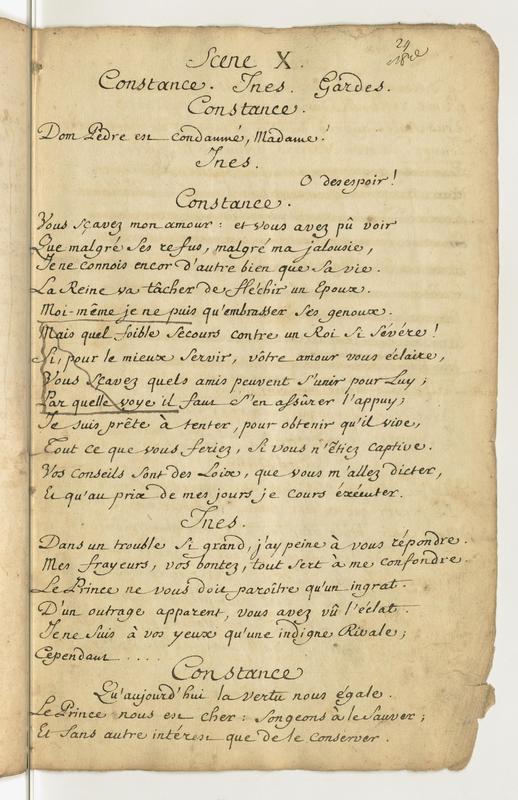 24
Scene X.
Constance. Ines. Gardes.
Constance.
Dom Pedre est condamné, Madame!
Ines.
O desespoir!
Constance.
Vous sçavez mon amour: et vous avez pû voir
Que malgré ses refus, malgré ma jalousie,
Je ne connois encor d'autre bien que sa vie.
La Reine va tâcher de fléchir un Epoux.
Moi-même je ne puis qu'embrasser ses genoux.
Mais quel foible secours contre un Roi si sévére!
Si, pour le mieux servir, vôtre amour vous éclaire,
Vous sçavez quels amis peuvent s'unir pour Luy;
Par quelle voye il faut s'en assûrer l'appuy;
Je suis prête à tenter, pour obtenir qu'il vive,
Tout ce que vous feriez, si vous n'êtiez captive.
Vos conseils sont des Loix, que vous m'allez dicter,
Et qu'au prix de mes jours je cours éxécuter.
Ines.
Dans un trouble si grand, j'ay peine à vous répondre.
Mes frayeurs, vos bontez, tout sert à me confondre.
Le Prince ne vous doit paroître qu'un ingrat.
D'un outrage apparent, vous avez vû l'éclat.
Je ne suis à vos yeux qu'une indigne Rivale;
Cependant ....
Constance
Qu'aujourd'hui la vertu nous égale.
Le Prince nous est cher: songeons à le sauver;
Et sans autre intérest que de le conserver.